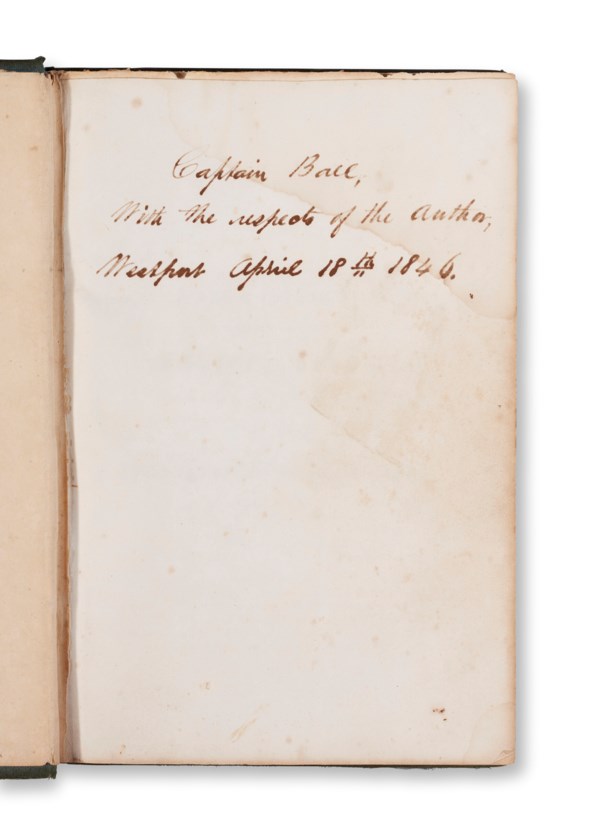 Captain Ball,
With the respects of the Author,
Westport April 18th 1846.